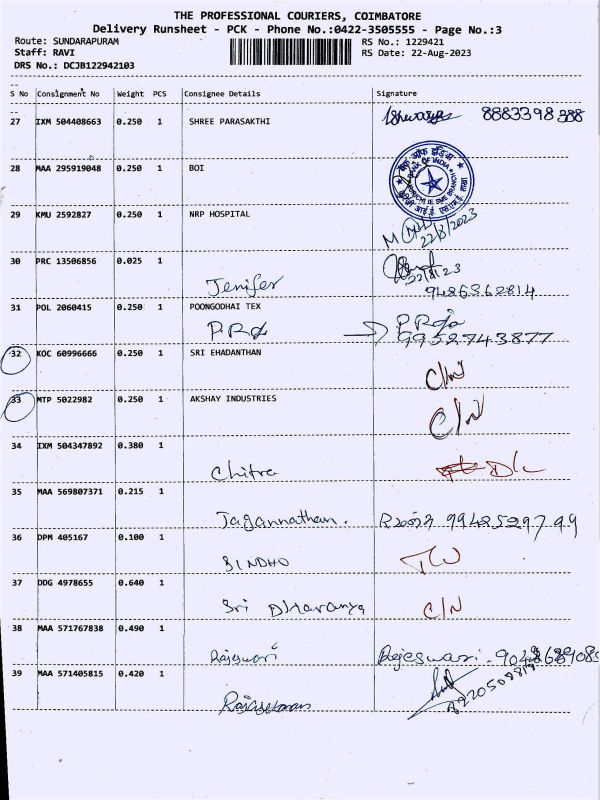 THE PROFESSIONAL COURIERS, COIMBATORE
Delivery Runsheet - PCK - Phone No.:0422-3505555 - Page No.:3
Route: SUNDARAPURAM RS No.: 1229421
Staff: RAVI RS Date: 22-Aug-2023
DRS No.: DCJB122942103
S No Consignment No Weight PCS Consignee Details Signature
27 IXM 504408663 0.250 1 SHREE PARASAKTHI 8883398388
28 MAA 295919048 0.250 1 BOI
BANK OF INDIA
29 KMU 2592827 0.250 1 NRP HOSPITAL
22/8/2023
30 PRC 13506856 0.025 1
22/8/23
Jenifer 9486362814
31 POL 2060415 0.250 1 POONGODHAI TEX
9952743877
32 KOC 60996666 0.250 1 SRI EHADANTHAN
C/N
33 MTP 5022982 0.250 1 AKSHAY INDUSTRIES
C/N
34 IXM 504347892 0.380 1
Chitra
35 MAA 569807371 0.215 1
Jagannathan. 9942529799
36 DPM 405167 0.100 1
BINDHO
37 DDG 4978655 0.640 1
Sri Dharanya C/N
38 MAA 571767838 0.490 1
Rajeswari Rajeswari
39 MAA 571405815 0.420 1